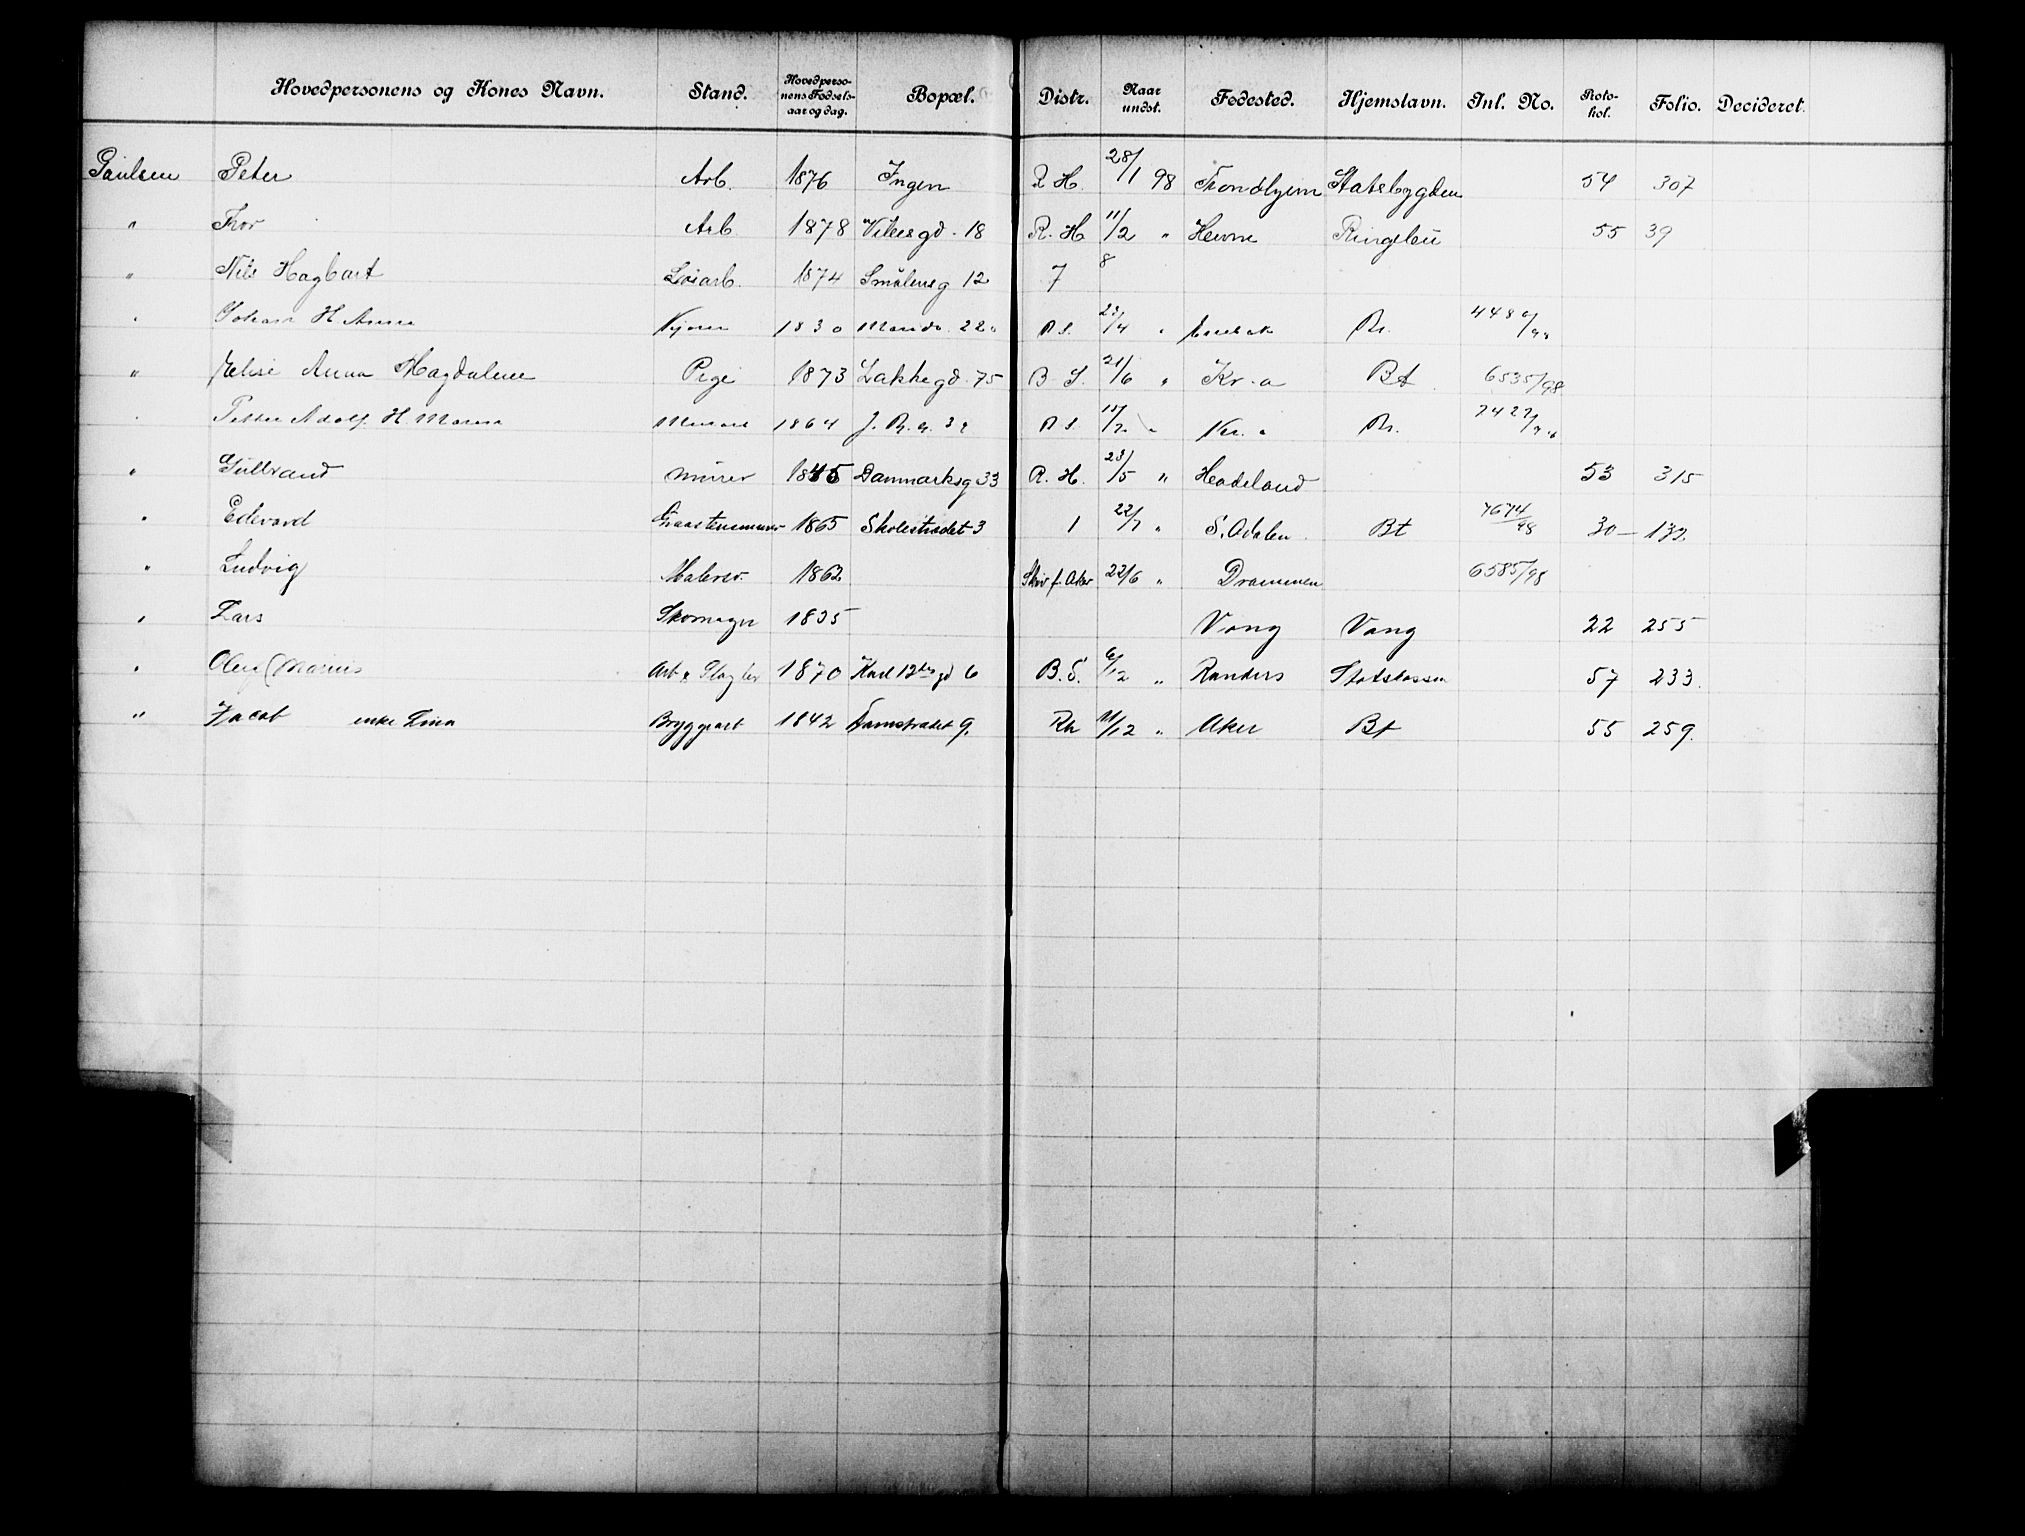 Hovedpersonens og Kones Navn. Stand. Hovedpersonens Fødselsaar og dag. Bopæl. Distr. Naar undst. Fødested. Hjemstavn. Inl. No. Protokol. Folio. Decideret.
Paulsen Peter Arb. 1876 Ingen R. H. 28/1 98 Trondhjem Statsbygden 54 307
" Thor Arb 1878 Vikergd. 18 R. H. 11/2 " Hevne Ringebu 55 39
" Nils Hagbart Løsarb. 1874 Smålensg 12 7 8
" Johan H Anna 1830 22 B. S. /4 " Enebak Bt. 448
" Elise Anna Magdalene Pige 1873 Lakkegd. 75 B. S. 21/6 " Kr.a Bt 6535/98
" Petter Adolf H Maren Murer 1864 B. S. " Kr.a Bt. 7427/98
" Gulbrand murer 1845 Danmarksg 33 R. H. 23/5 " Hadeland 53 315
" Edvard Graastensmurer 1865 Skolestrædet 3 1 22/7 " S. Odalen Bt 7674/98 30 — 132
" Ludvig Malersv. 1862 Skiv f. Aker 22/6 " Drammen 6585/98
" Lars Skomager 1835 Vang Vang 22 255
" Oluf Marius Arb & Slagter 1870 Karl 12tes gd 6 B. S. 6/12 " Randers Statskassen 57 233.
" Jacob enke Lina Bryggearb 1842 Damstrædet 9. Rh 21/12 " Aker Bt 55 259.